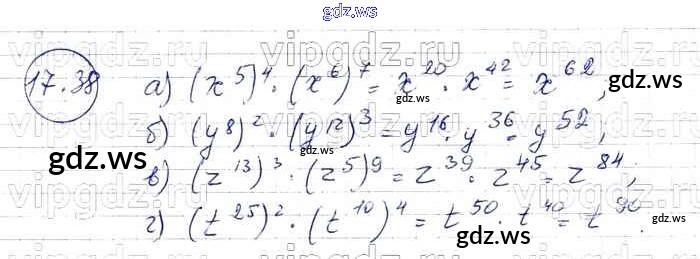 gdz.ws
17.38 а) (x^5)^4 · (x^6)^7 = x^20 · x^42 = x^62,
б) (y^8)^2 · (y^12)^3 = y^16 · y^36 = y^52,
в) (z^13)^3 · (z^5)^9 = z^39 · z^45 = z^84;
г) (t^25)^2 · (t^10)^4 = t^50 · t^40 = t^90.
vipgdz.ru vipgdz.ru vipgdz.ru
gdz.ws gdz.ws
gdz.ws gdz.ws
gdz.ws gdz.ws